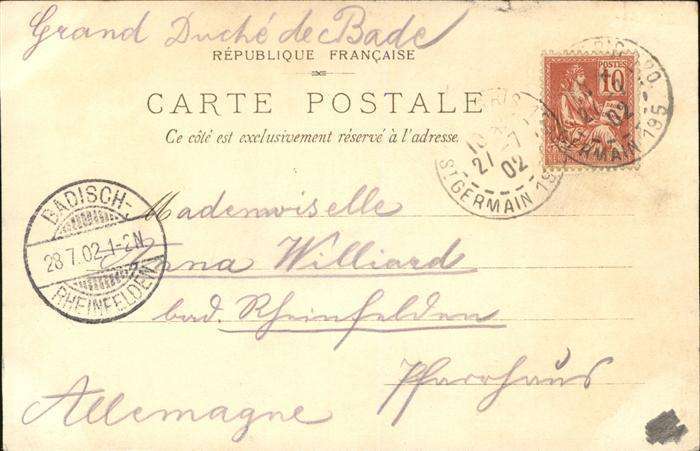 Grand Duché de Bade
RÉPUBLIQUE FRANÇAISE
POSTES
10
CARTE POSTALE
Ce côté est exclusivement réservé à l'adresse.
21 -7
02
St GERMAIN
GERMAIN 195
02
BADISCH-
28.7.02.1-2N
RHEINFELDEN
Mademoiselle
Anna Williard
bad. Rheinfelden
Pfarrhaus
Allemagne